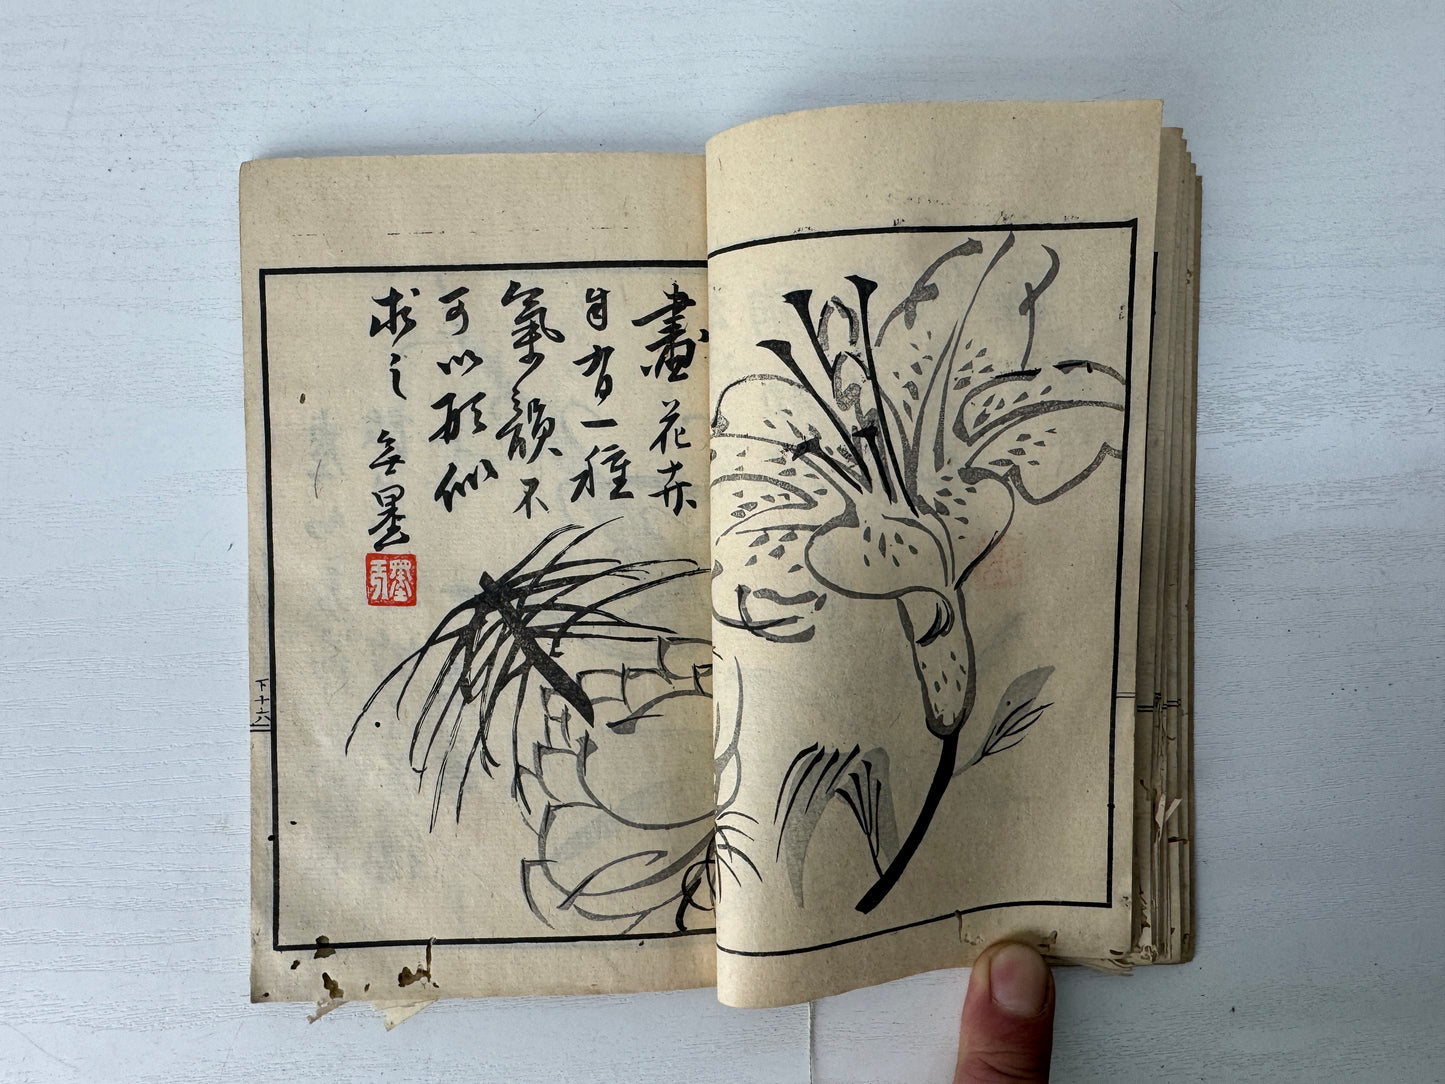 畫花卉
自有一種
氣韻不
可以形似
求之 墨
下十六